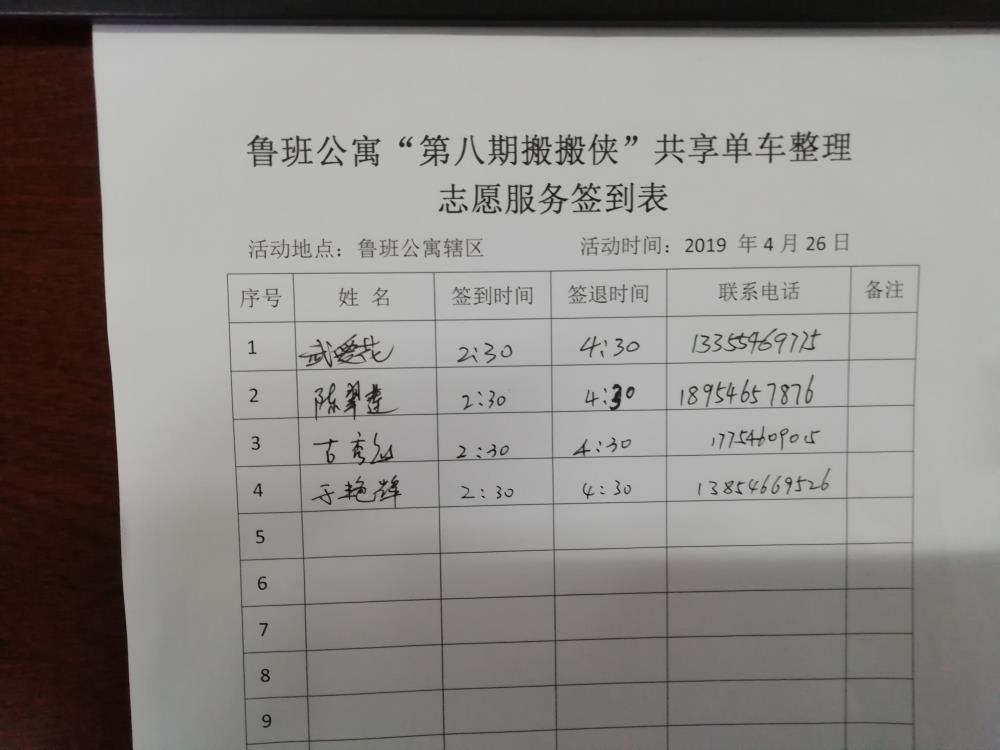 鲁班公寓“第八期搬搬侠”共享单车整理
志愿服务签到表
活动地点：鲁班公寓辖区 活动时间：2019 年 4 月 26 日
序号 姓 名 签到时间 签退时间 联系电话 备注
1 武爱花 2:30 4:30 13355469775
2 陈翠莲 2:30 4:30 18954657876
3 古 2:30 4:30 17754609015
4 于艳辉 2:30 4:30 13854669526
5
6
7
8
9